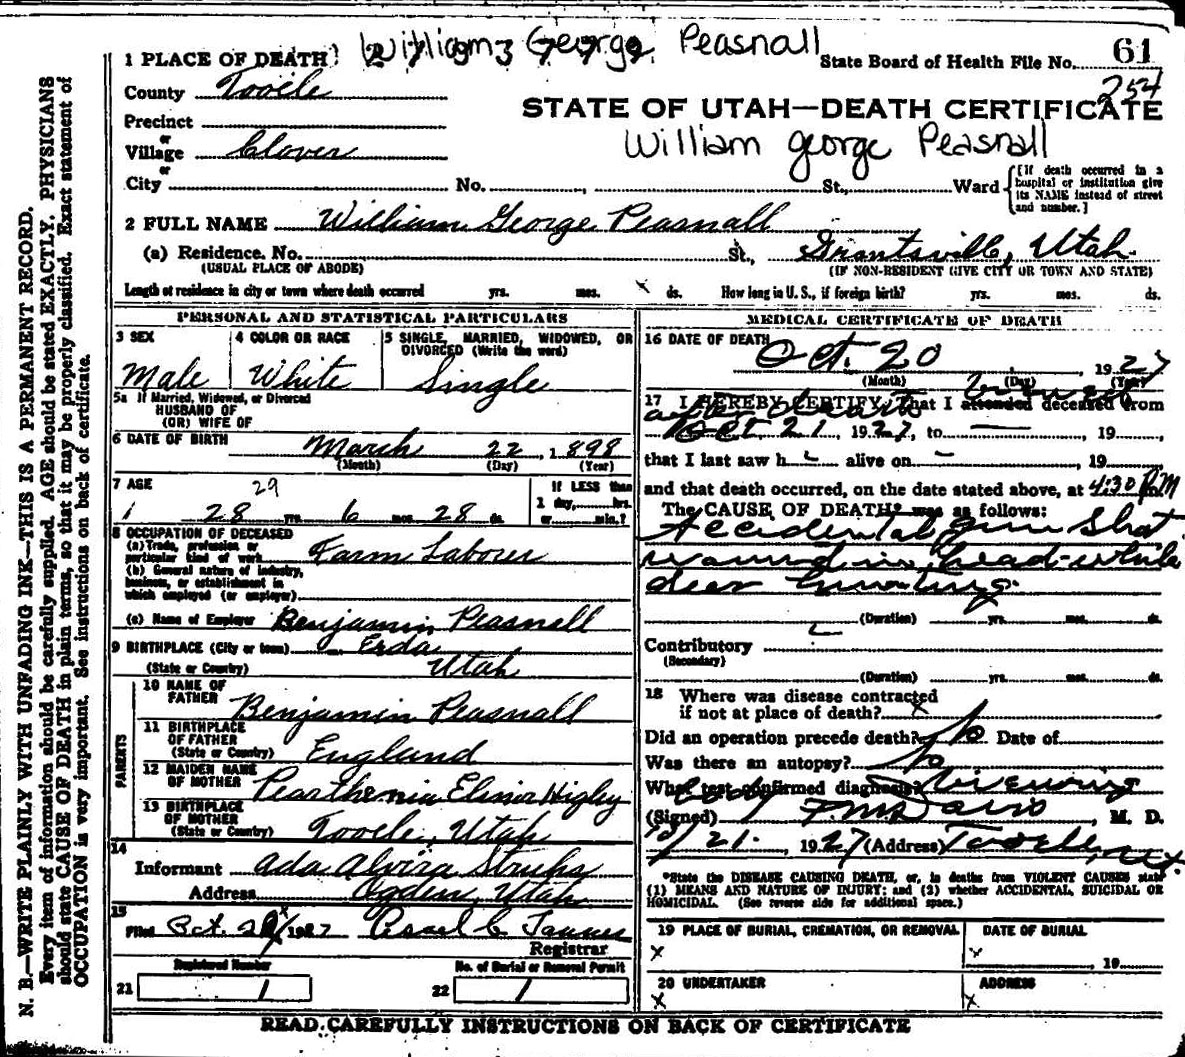 William George Peasnall
1 PLACE OF DEATH
State Board of Health File No. 61
254
County Tooele
STATE OF UTAH—DEATH CERTIFICATE
Precinct
or
William george Peasnall
Village Clover
or
City No. , St., Ward
[If death occurred in a hospital or institution give its NAME instead of street and number.]
2 FULL NAME William George Peasnall
(a) Residence. No. St., Grantsville, Utah.
(USUAL PLACE OF ABODE) (IF NON-RESIDENT GIVE CITY OR TOWN AND STATE)
Length of residence in city or town where death occurred yrs. mos. x ds. How long in U. S., if foreign birth? yrs. mos. ds.
PERSONAL AND STATISTICAL PARTICULARS
3 SEX
Male
4 COLOR OR RACE
White
5 SINGLE, MARRIED, WIDOWED, OR DIVORCED (Write the word)
Single
5a If Married, Widowed, or Divorced
HUSBAND OF
(OR) WIFE OF
6 DATE OF BIRTH March 22, 1898
(Month) (Day) (Year)
7 AGE 29
28 yrs. 6 mos. 28 ds.
If LESS than
1 day, hrs.
or min.?
8 OCCUPATION OF DECEASED
(a) Trade, profession or
particular kind of work Farm Laborer
(b) General nature of industry,
business, or establishment in
which employed (or employer)
(c) Name of Employer Benjamin Peasnall
9 BIRTHPLACE (City or town) Erda
(State or Country) Utah
PARENTS
10 NAME OF
FATHER Benjamin Peasnall
11 BIRTHPLACE
OF FATHER
(State or Country) England
12 MAIDEN NAME
OF MOTHER Pearthenia Elinor Higley
13 BIRTHPLACE
OF MOTHER
(State or Country) Tooele, Utah
14
Informant Ada Alvira Struhs
Address Ogden, Utah
15
Filed Oct. 1927
Registrar
Registered Number
21 1
No. of Burial or Removal Permit
22 1
MEDICAL CERTIFICATE OF DEATH
16 DATE OF DEATH
Oct. 20, 1927
(Month) (Day) (Year)
viewed
17 I HEREBY CERTIFY, That I attended deceased from
after death
Oct. 21, 1927, to — , 19 ,
that I last saw h alive on – , 19
and that death occurred, on the date stated above, at 4:30 P.M
The CAUSE OF DEATH* was as follows:
Accidental gun shot
wound in head-while
deer hunting.
(Duration) yrs. mos. ds.
Contributory
(Secondary)
(Duration) yrs. mos. ds.
18 Where was disease contracted
if not at place of death? x
Did an operation precede death? No Date of
Was there an autopsy? No
What test confirmed diagnosis? Viewing
body
(Signed) F.M. Davis, M. D.
10/21, 1927 (Address) Tooele, Ut.
*State the DISEASE CAUSING DEATH, or, in deaths from VIOLENT CAUSES state
(1) MEANS AND NATURE OF INJURY; and (2) whether ACCIDENTAL, SUICIDAL OR
HOMICIDAL. (See reverse side for additional space.)
19 PLACE OF BURIAL, CREMATION, OR REMOVAL
x
DATE OF BURIAL
x , 19
20 UNDERTAKER
x
ADDRESS
x
READ CAREFULLY INSTRUCTIONS ON BACK OF CERTIFICATE
N. B.—WRITE PLAINLY WITH UNFADING INK—THIS IS A PERMANENT RECORD.
Every item of information should be carefully supplied. AGE should be stated EXACTLY. PHYSICIANS
should state CAUSE OF DEATH in plain terms, so that it may be properly classified. Exact statement of
OCCUPATION is very important. See instructions on back of certificate.